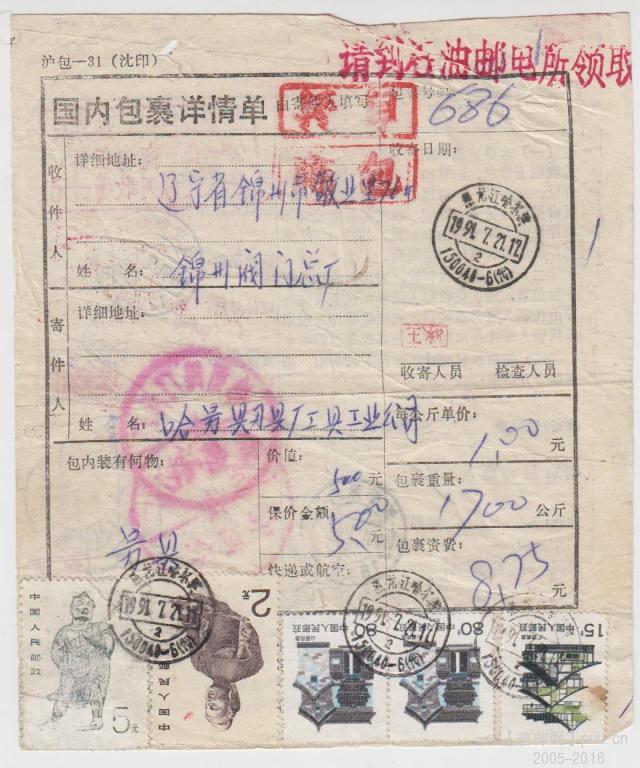 沪包—31 (沈印)
请到石油邮电所领取
国内包裹详情单
由寄件人填写
686
收寄日期:
收件人
详细地址:
辽宁省锦州市敬业里
黑龙江哈尔滨
1991.7.21.17
2
150040-6(代)
姓 名:
锦州阀门总厂
寄件人
详细地址:
收寄人员
检查人员
姓 名:
哈量具刃具厂工具工业公司
每公斤单价:
1.00 元
包内装有何物:
量具
价值:
500 元
包裹重量:
1700 公斤
保价金额:
500 元
包裹资费:
8.25 元
快递或航空:
中国人民邮政
5元
中国人民邮政
2元
中国人民邮政
80分
中国人民邮政
80分
中国人民邮政
15分
2005-2016